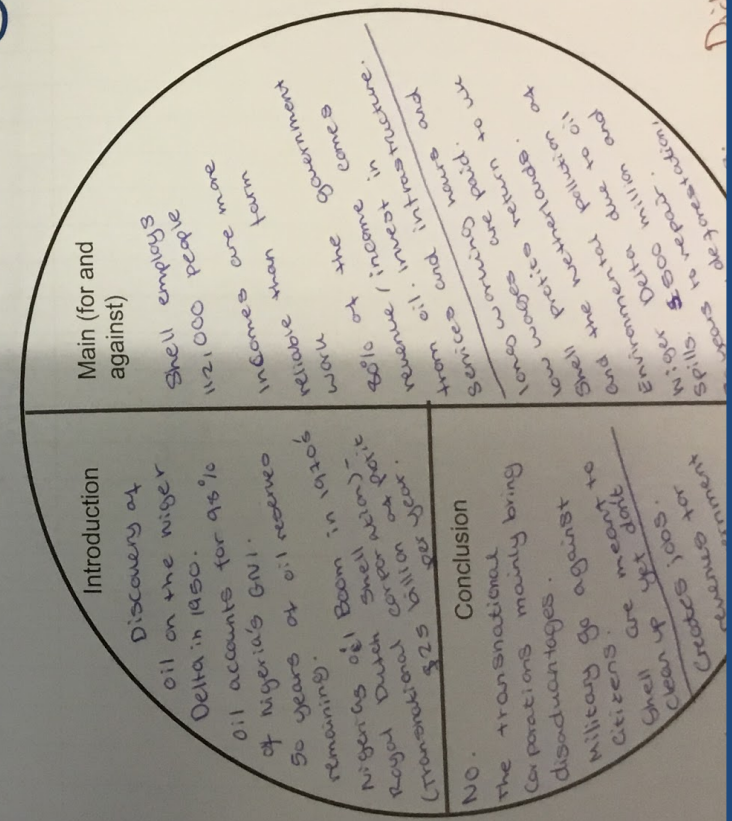 Introduction
Discovery of
oil on the Niger
Delta in 1950.
Oil accounts for 95%
of Nigeria's GNI.
50 years of oil reserves
remaining.
Nigerias oil Boom in 1970's
Royal Dutch Shell
(Transnational corporation of
$25 billion per year.
Main (for and
against)
Shell employs
1121000 people
Incomes are more
reliable than farm
work
80% of the government
revenue/income comes
from oil. Invest in
services and infrastructure.
long working hours and
low wages are paid.
Shell profits return to UK
and the Netherlands.
Environmental pollution of
Niger Delta due to oil
spills. $500 million and
years to repair.
deforestation,
Conclusion
NO.
The transnational
corporations mainly bring
disadvantages.
Military go against
citizens.
Shell are meant to
clean up yet don't
Creates jobs.
revenues for